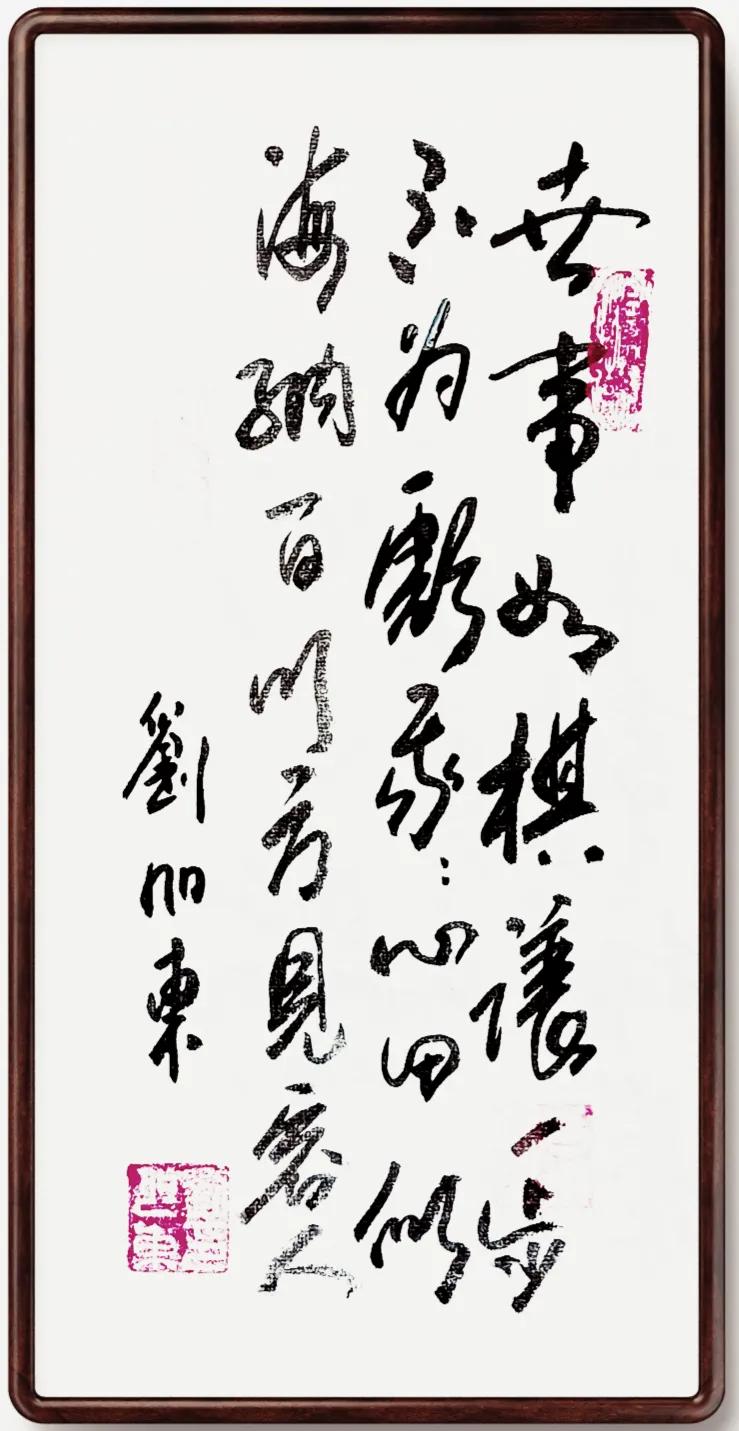 世事如棋讓一步
不为虧我：心田似
海納百川方見容人
劉東